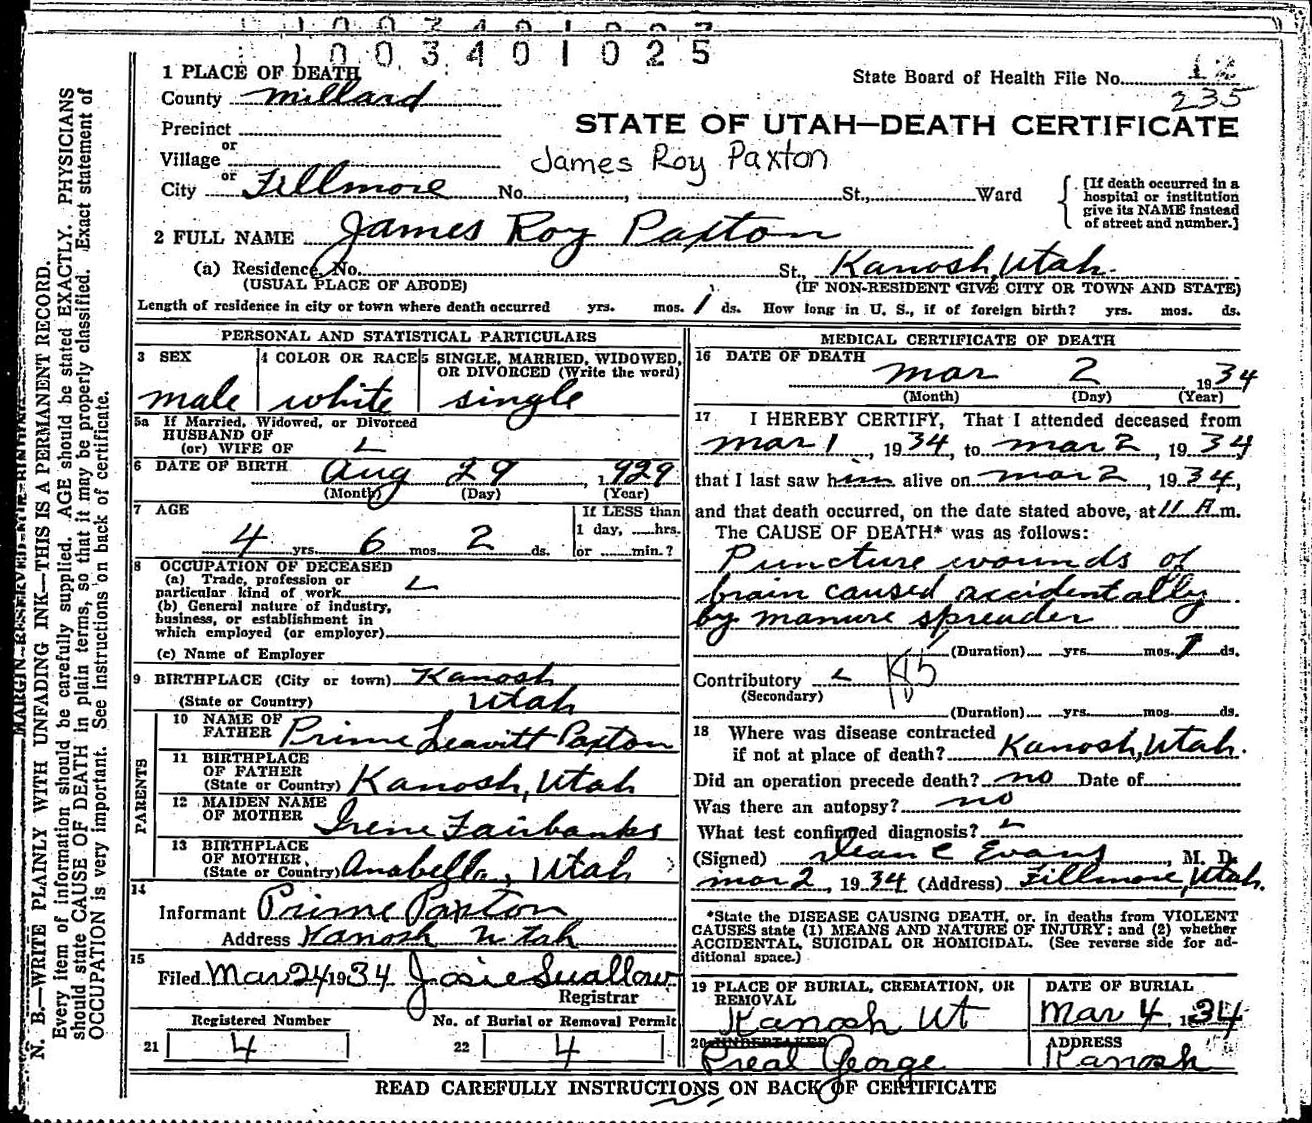 1003401025
1 PLACE OF DEATH
State Board of Health File No. 12
235
County Millard
STATE OF UTAH—DEATH CERTIFICATE
Precinct
or
Village
James Roy Paxton
or
City Fillmore No. , St., Ward
[If death occurred in a hospital or institution give its NAME instead of street and number.]
2 FULL NAME James Roy Paxton
(a) Residence, No. St., Kanosh, Utah.
(USUAL PLACE OF ABODE) (IF NON-RESIDENT GIVE CITY OR TOWN AND STATE)
Length of residence in city or town where death occurred yrs. mos. 1 ds. How long in U. S., if of foreign birth? yrs. mos. ds.
PERSONAL AND STATISTICAL PARTICULARS
3 SEX
male
4 COLOR OR RACE
white
5 SINGLE, MARRIED, WIDOWED,
OR DIVORCED (Write the word)
single
5a If Married, Widowed, or Divorced
HUSBAND OF
(or) WIFE OF
6 DATE OF BIRTH Aug 29, 1929
(Month) (Day) (Year)
7 AGE
4 yrs. 6 mos. 2 ds.
If LESS than
1 day, ....hrs.
or ......min.?
8 OCCUPATION OF DECEASED
(a) Trade, profession or
particular kind of work
(b) General nature of industry,
business, or establishment in
which employed (or employer)
(c) Name of Employer
9 BIRTHPLACE (City or town) Kanosh
(State or Country) Utah
PARENTS
10 NAME OF
FATHER Prime Leavitt Paxton
11 BIRTHPLACE
OF FATHER
(State or Country) Kanosh, Utah
12 MAIDEN NAME
OF MOTHER Irene Fairbanks
13 BIRTHPLACE
OF MOTHER
(State or Country) Anabella, Utah
14
Informant Prime Paxton
Address Kanosh Utah
15
Filed Mar 24 1934 Josie Swallow
Registrar
Registered Number
21 4
No. of Burial or Removal Permit
22 4
MEDICAL CERTIFICATE OF DEATH
16 DATE OF DEATH
Mar 2 1934
(Month) (Day) (Year)
17 I HEREBY CERTIFY, That I attended deceased from
Mar 1, 1934, to Mar 2, 1934
that I last saw him alive on Mar 2, 1934,
and that death occurred, on the date stated above, at 11 A.m.
The CAUSE OF DEATH* was as follows:
Puncture wounds of
brain caused accidentally
by manure spreader
(Duration) yrs. mos. 1 ds.
Contributory
(Secondary)
(Duration) yrs. mos. ds.
18 Where was disease contracted
if not at place of death? Kanosh, Utah.
Did an operation precede death? no Date of
Was there an autopsy? no
What test confirmed diagnosis?
(Signed) Dean C Evans, M. D.
Mar 2, 1934 (Address) Fillmore, Utah.
*State the DISEASE CAUSING DEATH, or, in deaths from VIOLENT
CAUSES state (1) MEANS AND NATURE OF INJURY; and (2) whether
ACCIDENTAL, SUICIDAL OR HOMICIDAL. (See reverse side for ad-
ditional space.)
19 PLACE OF BURIAL, CREMATION, OR
REMOVAL
Kanosh Ut
DATE OF BURIAL
Mar 4, 1934
20 UNDERTAKER
Preal George
ADDRESS
Kanosh
READ CAREFULLY INSTRUCTIONS ON BACK OF CERTIFICATE
MARGIN RESERVED FOR BINDING
N. B.—WRITE PLAINLY WITH UNFADING INK—THIS IS A PERMANENT RECORD.
Every item of information should be carefully supplied. AGE should be stated EXACTLY. PHYSICIANS
should state CAUSE OF DEATH in plain terms, so that it may be properly classified. Exact statement of
OCCUPATION is very important. See instructions on back of certificate.